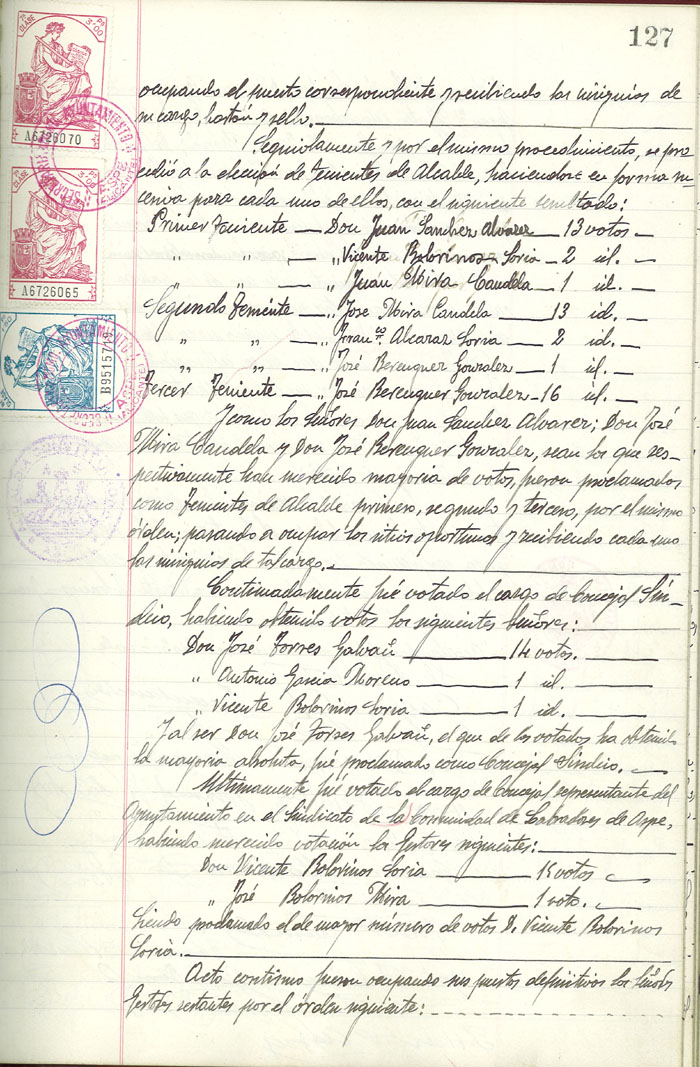 127
7ª CLASE
3'00
A6726070
A6726065
B9515719
AYUNTAMIENTO
ASPE
(ALICANTE)
ocupando el puesto correspondiente y recibiendo las insignias de
su cargo, bastón y sello.
Seguidamente y por el mismo procedimiento, se pro
cedió a la elección de Tenientes de Alcalde, haciéndose en forma su
cesiva para cada uno de ellos, con el siguiente resultado:
Primer Teniente — Don Juan Sanchez Alvarez — 13 votos —
" " — " Vicente Bolorinos Soria — 2 id. —
" " — " Juan Mira Candela — 1 id. —
Segundo Teniente — " Jose Mira Candela — 13 id. —
" " — " Franco. Alcaraz Soria — 2 id. —
" " — " José Berenguer Gonzalez — 1 id. —
Tercer Teniente — " José Berenguer Gonzalez — 16 id. —
Y como los Señores Don Juan Sanchez Alvarez; Don José
Mira Candela y Don José Berenguer Gonzalez, sean los que res-
pectivamente han merecido mayoria de votos, fueron proclamados
como Tenientes de Alcalde primero, segundo y tercero, por el mismo
órden; pasando a ocupar los sitios oportunos y recibiendo cada uno
las insignias de tal cargo.
Continuadamente fué votado el cargo de Concejal Sín-
dico, habiendo obtenido votos los siguientes Señores:
Don José Torres Galvañ — 14 votos. —
" Antonio Garcia Moreno — 1 id. —
" Vicente Bolorinos Soria — 1 id. —
Y al ser Don José Torres Galvañ, el que de los votados ha obtenido
la mayoria absoluta, fué proclamado como Concejal Síndico.
Ultimamente fué votado el cargo de Concejal representante del
Ayuntamiento en el Sindicato de la Comunidad de Labradores de Aspe,
habiendo merecido votación los Gestores siguientes:
Don Vicente Bolorinos Soria — 15 votos
" José Bolorinos Mira — 1 voto.
Siendo proclamado el de mayor número de votos D. Vicente Bolorinos
Soria.
Acto contínuo fueron ocupando sus puestos definitivos los Señores
Gestores restantes por el órden siguiente: